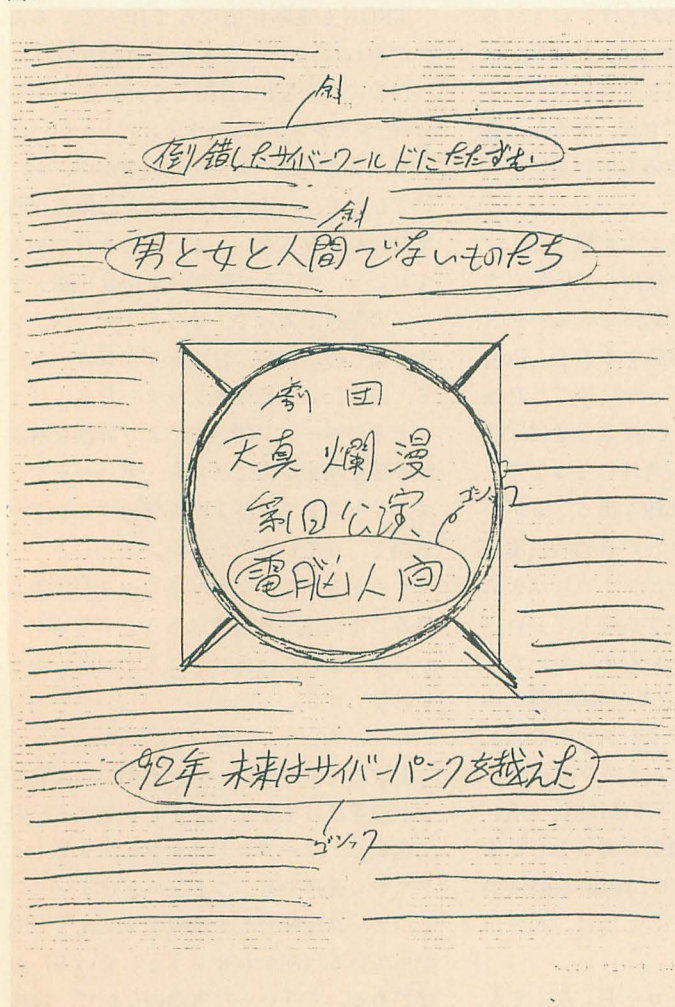 斜
倒錯したサイバーワールドにたたずむ
斜
男と女と人間でないものたち
劇団
天真爛漫
第1回公演
ゴシック
電脳人間
92年 未来はサイバーパンクを越えた
ゴシック